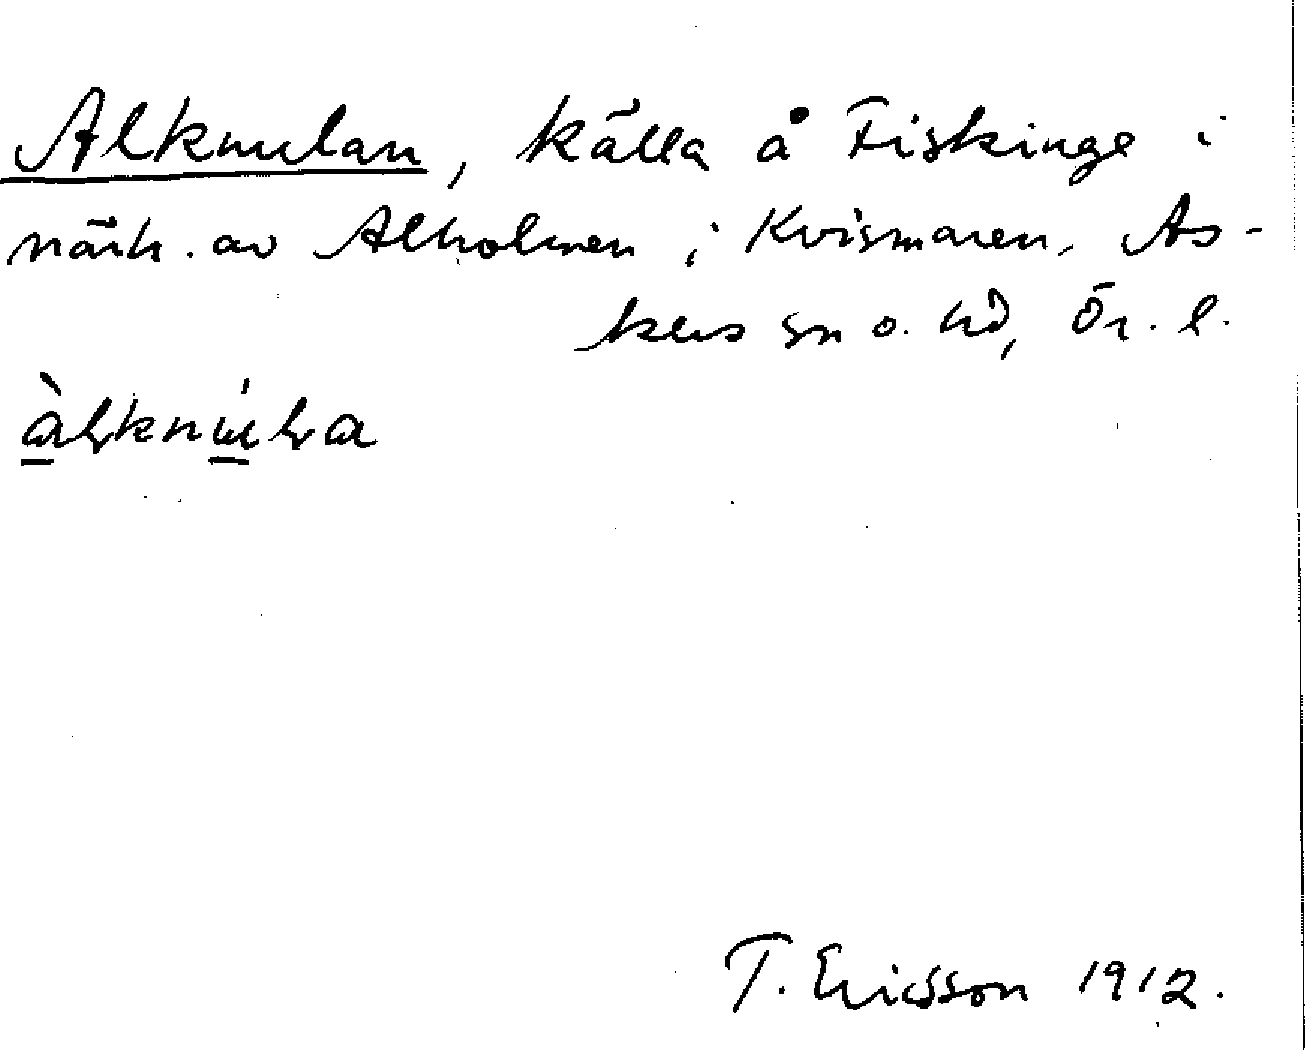 Alkmulan, källa å Fiskinge i
närh. av Alholmen i Kvismaren, As-
kers sn o. hd, Ör. l.
àlknúla
T. Ericsson 1912.